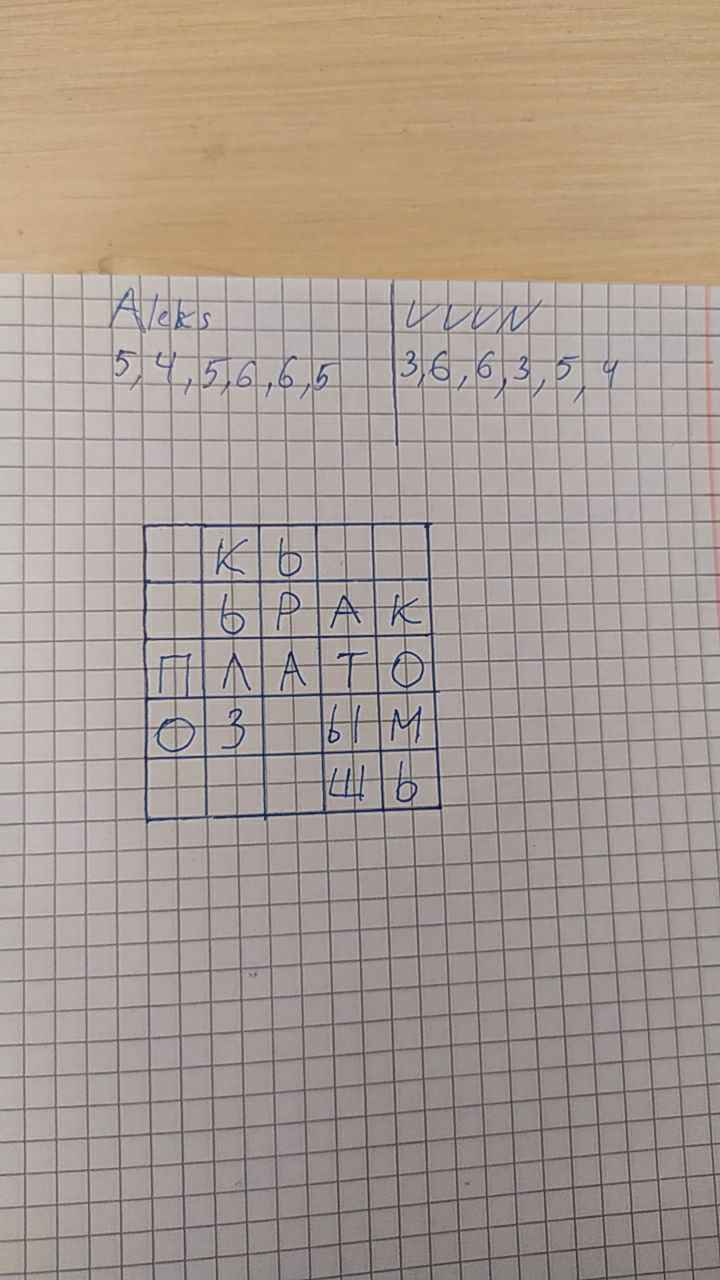 Aleks
VVVN
5, 4, 5, 6, 6, 5
3, 6, 6, 3, 5, 4
К Ь
Ь Р А К
П Л А Т О
О З Ы М
Ш Ь